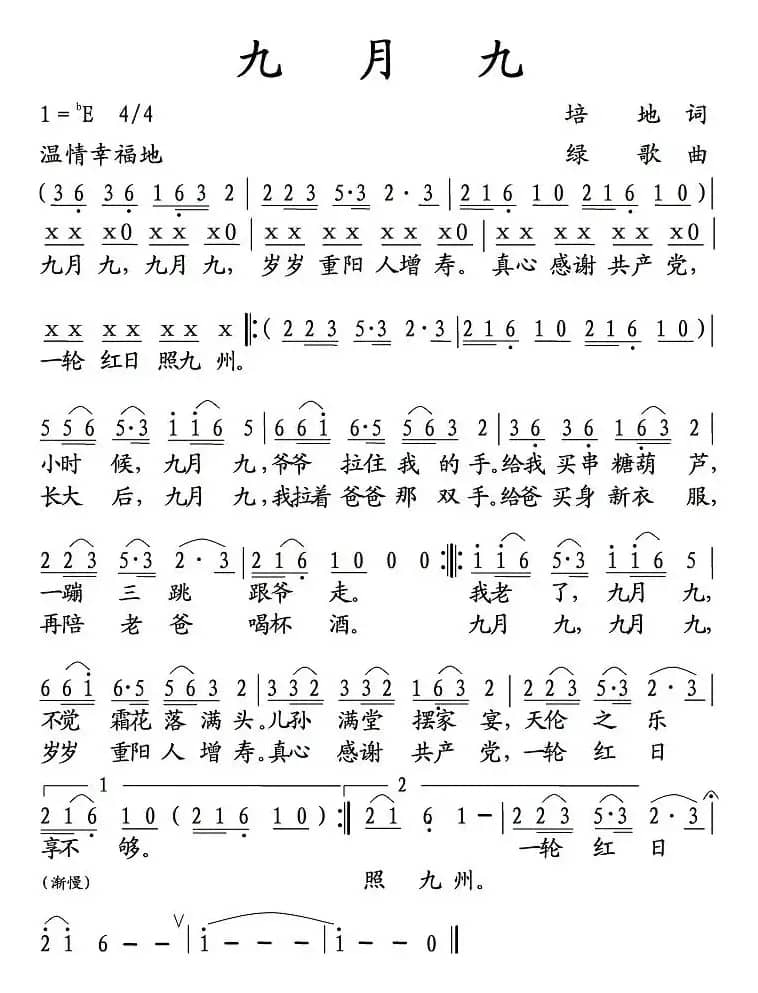 九 月 九
1 = ᵇE 4/4 培 地 词
温情幸福地 绿 歌 曲
( 3 6 3 6 1 6 3 2 | 2 2 3 5·3 2·3 | 2 1 6 1 0 2 1 6 1 0 ) |
x x x 0 x x x 0 | x x x x x x x 0 | x x x x x x x 0 |
九月 九, 九月 九, 岁岁 重阳 人增 寿。 真心 感谢 共产 党,
x x x x x x x ‖: ( 2 2 3 5·3 2·3 | 2 1 6 1 0 2 1 6 1 0 ) |
一轮 红日 照九 州。
5 5 6 5·3 i i 6 5 | 6 6 i 6·5 5 6 3 2 | 3 6 3 6 1 6 3 2 |
小时 候, 九月 九, 爷爷 拉住 我 的 手。给我 买串 糖葫 芦,
长大 后, 九月 九, 我拉着 爸爸 那 双 手。给爸 买身 新衣 服,
2 2 3 5·3 2·3 | 2 1 6 1 0 0 0 :‖: i i 6 5·3 i i 6 5 |
一蹦 三 跳 跟爷 走。 我老 了, 九月 九,
再陪 老 爸 喝杯 酒。 九月 九, 九月 九,
6 6 i 6·5 5 6 3 2 | 3 3 2 3 3 2 1 6 3 2 | 2 2 3 5·3 2·3 |
不觉 霜花 落 满 头。儿孙 满堂 摆家 宴, 天伦 之 乐
岁岁 重阳 人 增 寿。真心 感谢 共产 党, 一轮 红 日
1 2
2 1 6 1 0 ( 2 1 6 1 0 ) :‖ 2 1 6 1 – | 2 2 3 5·3 2·3 |
享不 够。 一轮 红 日
(渐慢) 照 九 州。
2 i 6 – – ∨ | i – – – | i – – 0 ‖